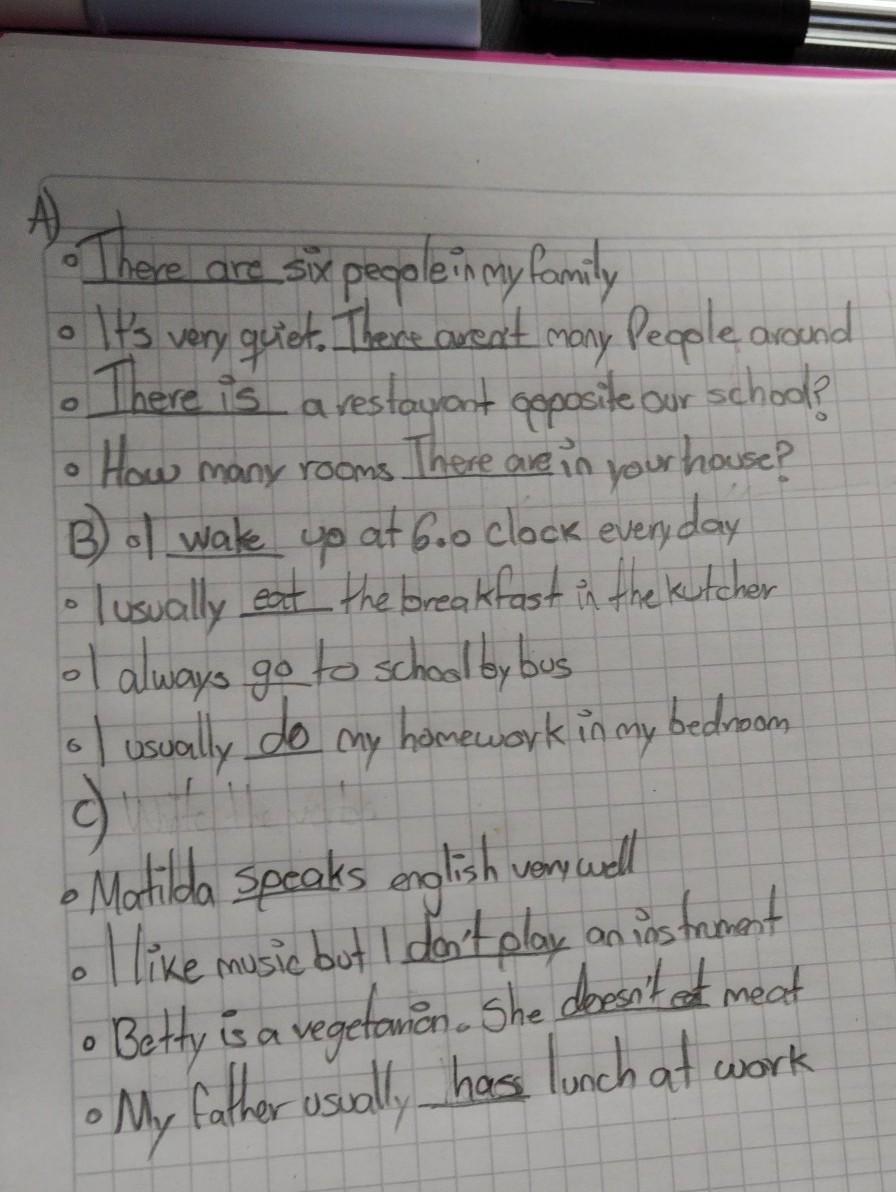 A)
◦ There are six people in my family
◦ It's very quiet. There aren't many People around
◦ There is a restaurant opposite our school?
◦ How many rooms There are in your house?
B) ◦ I wake up at 6.o clock every day
◦ I usually eat the breakfast in the kutcher
◦ I always go to school by bus
◦ I usually do my homework in my bedroom
C)
◦ Matilda speaks english very well
◦ I like music but I don't play an instrument
◦ Betty is a vegetarian. She doesn't et meat
◦ My father usually hass lunch at work